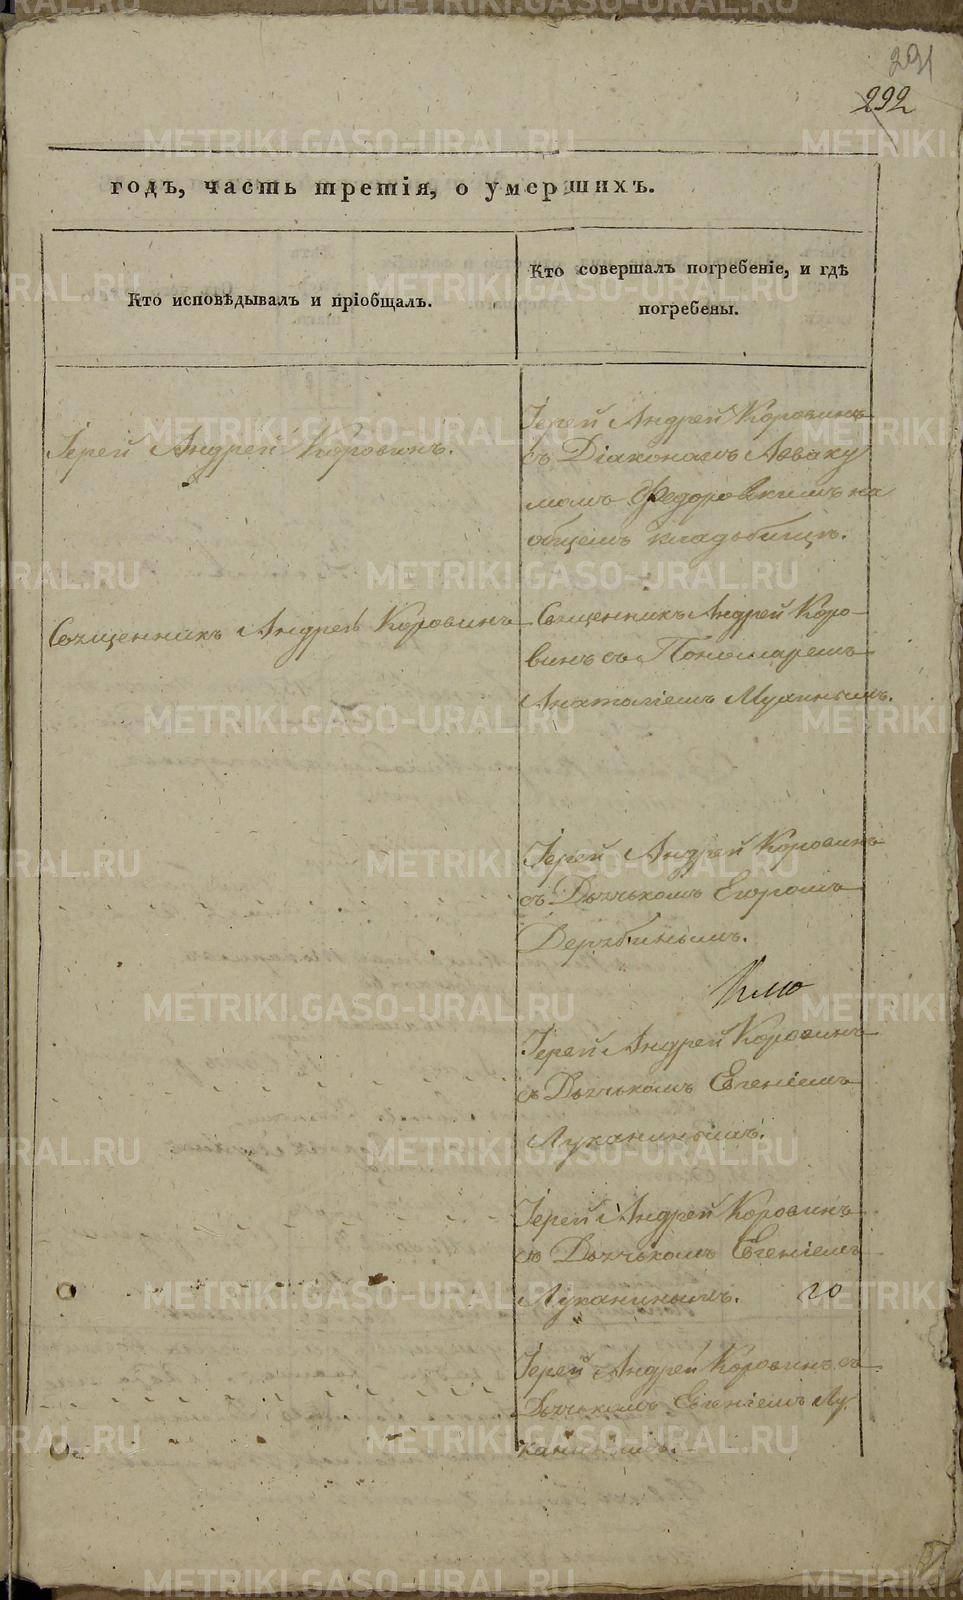 291
292
годъ, часть третія, о умершихъ.
Кто исповѣдывалъ и пріобщалъ.
Кто совершалъ погребеніе, и гдѣ
погребены.
Іерей Андрей Коровинъ.
Іерей Андрей Коровинъ
съ Діакономъ Авваку
момъ Федоровскимъ на
общемъ кладбищѣ.
Священникъ Андрей Коровинъ
Священникъ Андрей Коро-
винъ съ Пономаремъ
Анатоліемъ Мухинымъ.
Іерей Андрей Коровинъ
съ Дьячькомъ Егоромъ
Дерябинымъ.
Іерей Андрей Коровинъ
съ Дьячькомъ Евгеніемъ
Луканинымъ.
Іерей Андрей Коровинъ
съ Дьячькомъ Евгеніемъ
Луканинымъ.
Іерей Андрей Коровинъ съ
Дьячькомъ Евгеніемъ Лу
канинымъ.
METRIKI.GASO-URAL.RU